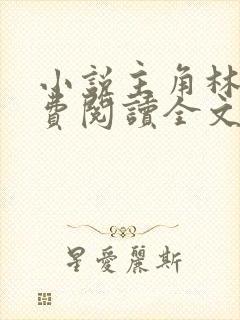 小說主角林
費閱讀全文
星愛麗斯